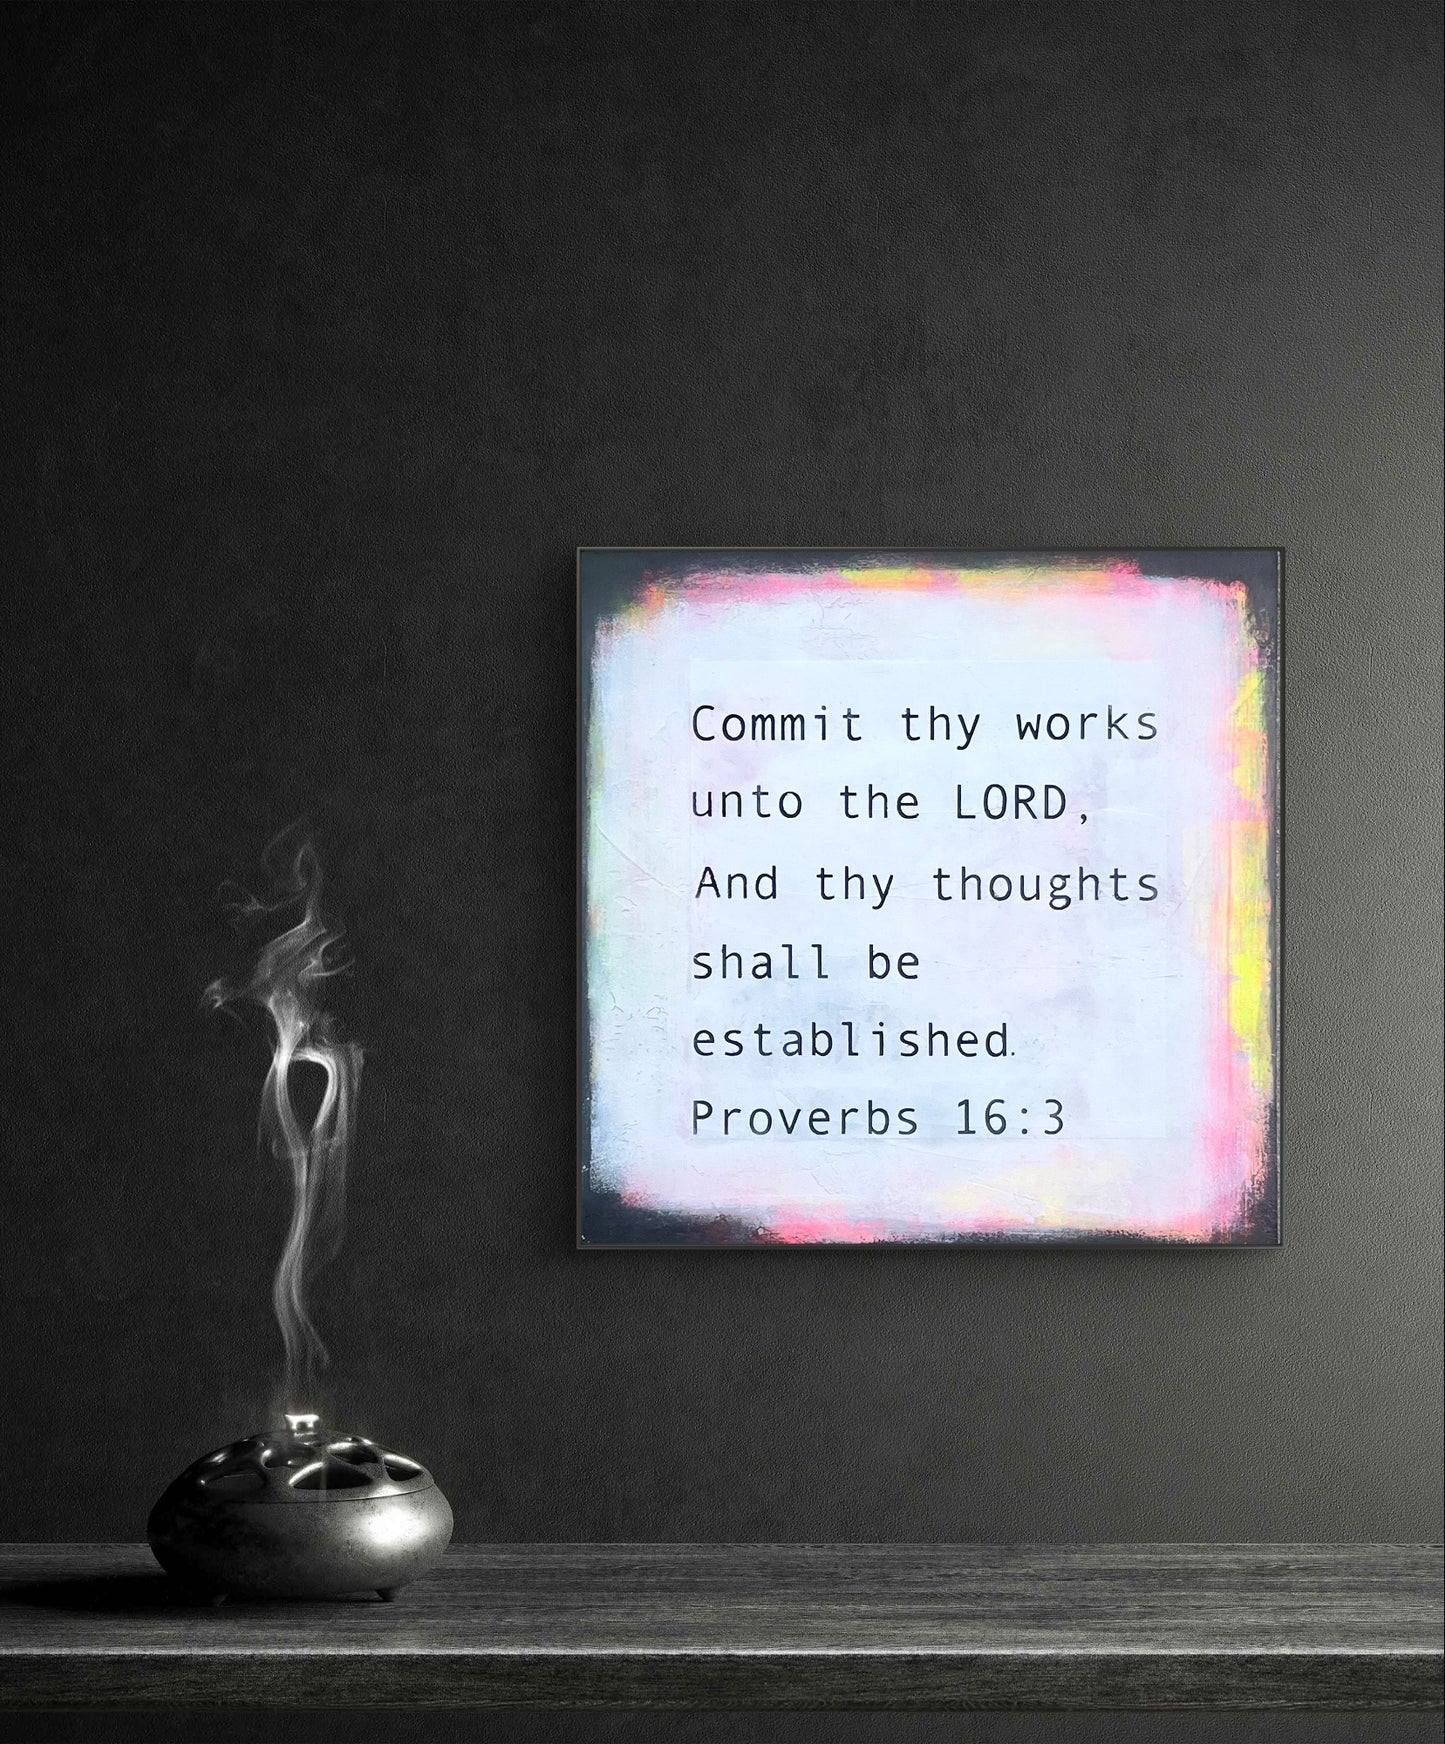 Commit thy works
unto the LORD,
And thy thoughts
shall be
established.
Proverbs 16:3